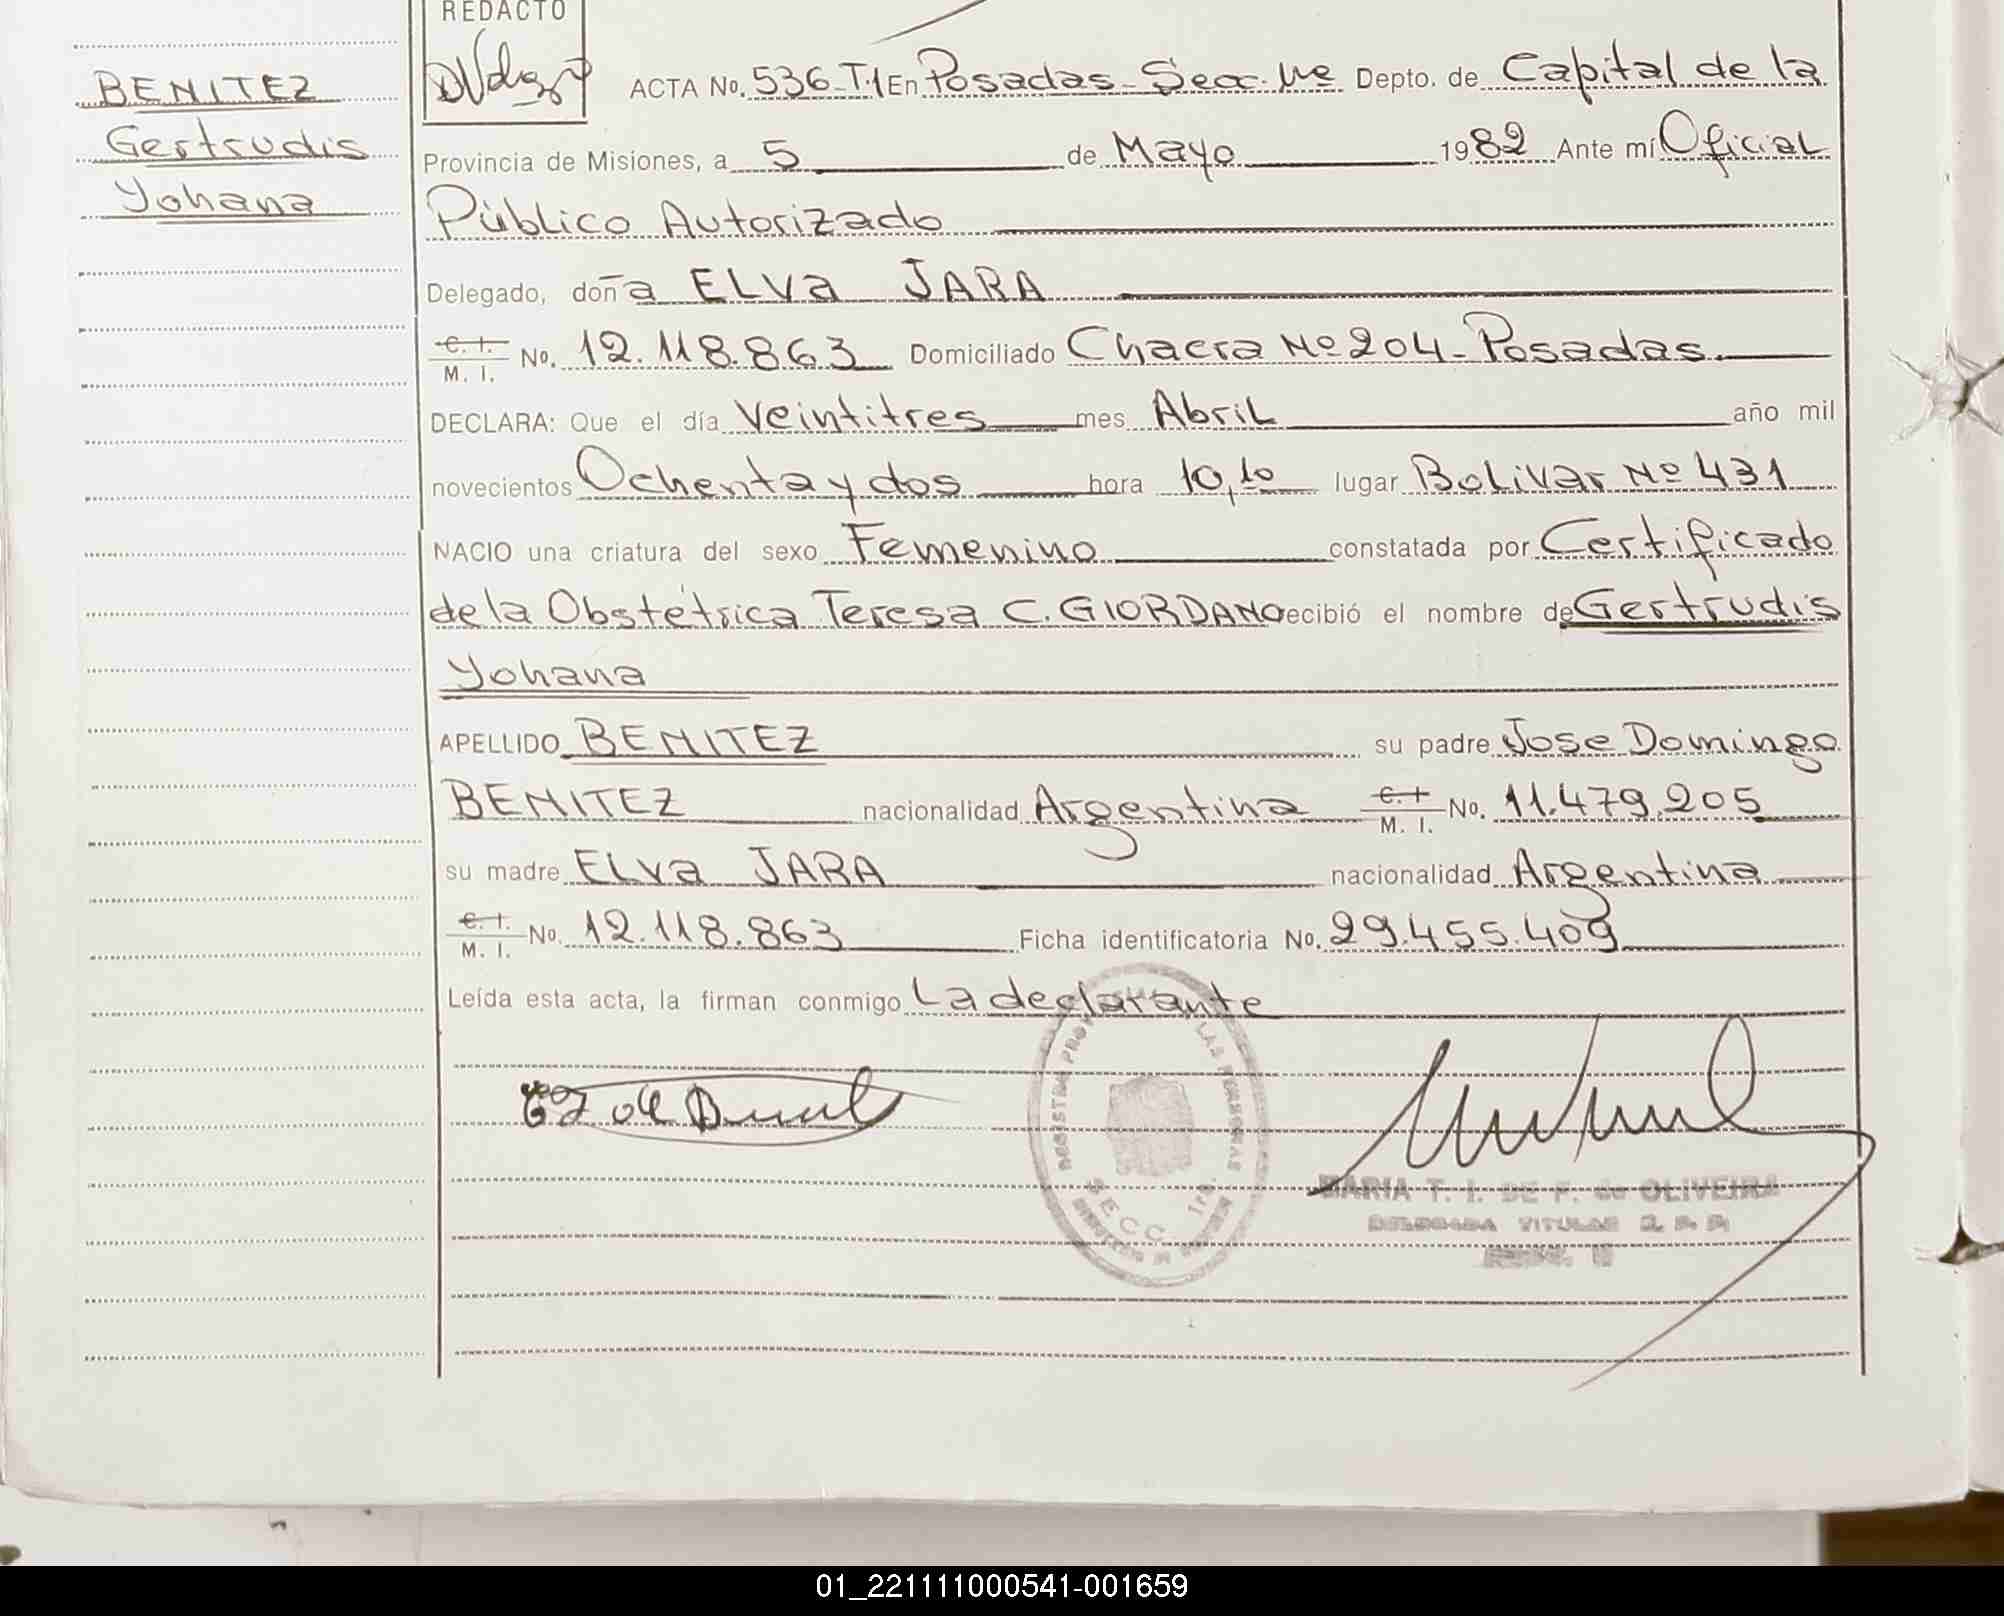 REDACTO
BENITEZ
Gertrudis
Yohana
ACTA No. 536-T.1 En Posadas - Secc. 1ra Depto. de Capital de la
Provincia de Misiones, a 5 de Mayo 1982 Ante mí Oficial
Público Autorizado
Delegado, doña ELVa JARA
C. I. M. I. No. 12.118.863 Domiciliado Chacra Nº 204 - Posadas.
DECLARA: Que el día Veintitres mes Abril año mil
novecientos Ochenta y dos hora 10,10 lugar Bolivar Nº 431
NACIO una criatura del sexo Femenino constatada por Certificado
de la Obstétrica Teresa C. GIORDANO recibió el nombre de Gertrudis
Yohana
APELLIDO BENITEZ su padre Jose Domingo
BENITEZ nacionalidad Argentina C. I. M. I. No. 11.479.205
su madre ELVa JARA nacionalidad Argentina
C. I. M. I. No. 12.118.863 Ficha identificatoria No. 29.455.409
Leída esta acta, la firman conmigo La declarante
LAS PERSONAS
SECC. 1ra.
MARIA T. I. DE F. de OLIVEIRA
DELEGADA TITULAR
01_221111000541-001659